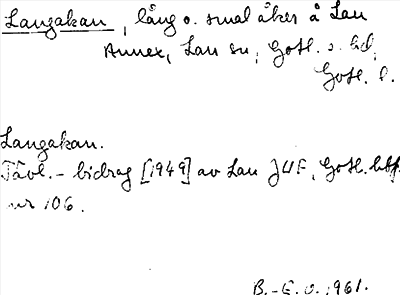 Langakan, lång o. smal åker å Lau
Annex, Lau sn, Gotl. s. hd,
Gotl. l.
Langakan.
Tävl.-bidrag [1949] av Lau JUF, Gotl. htf.
nr 106.
B.-E. O. 1961.